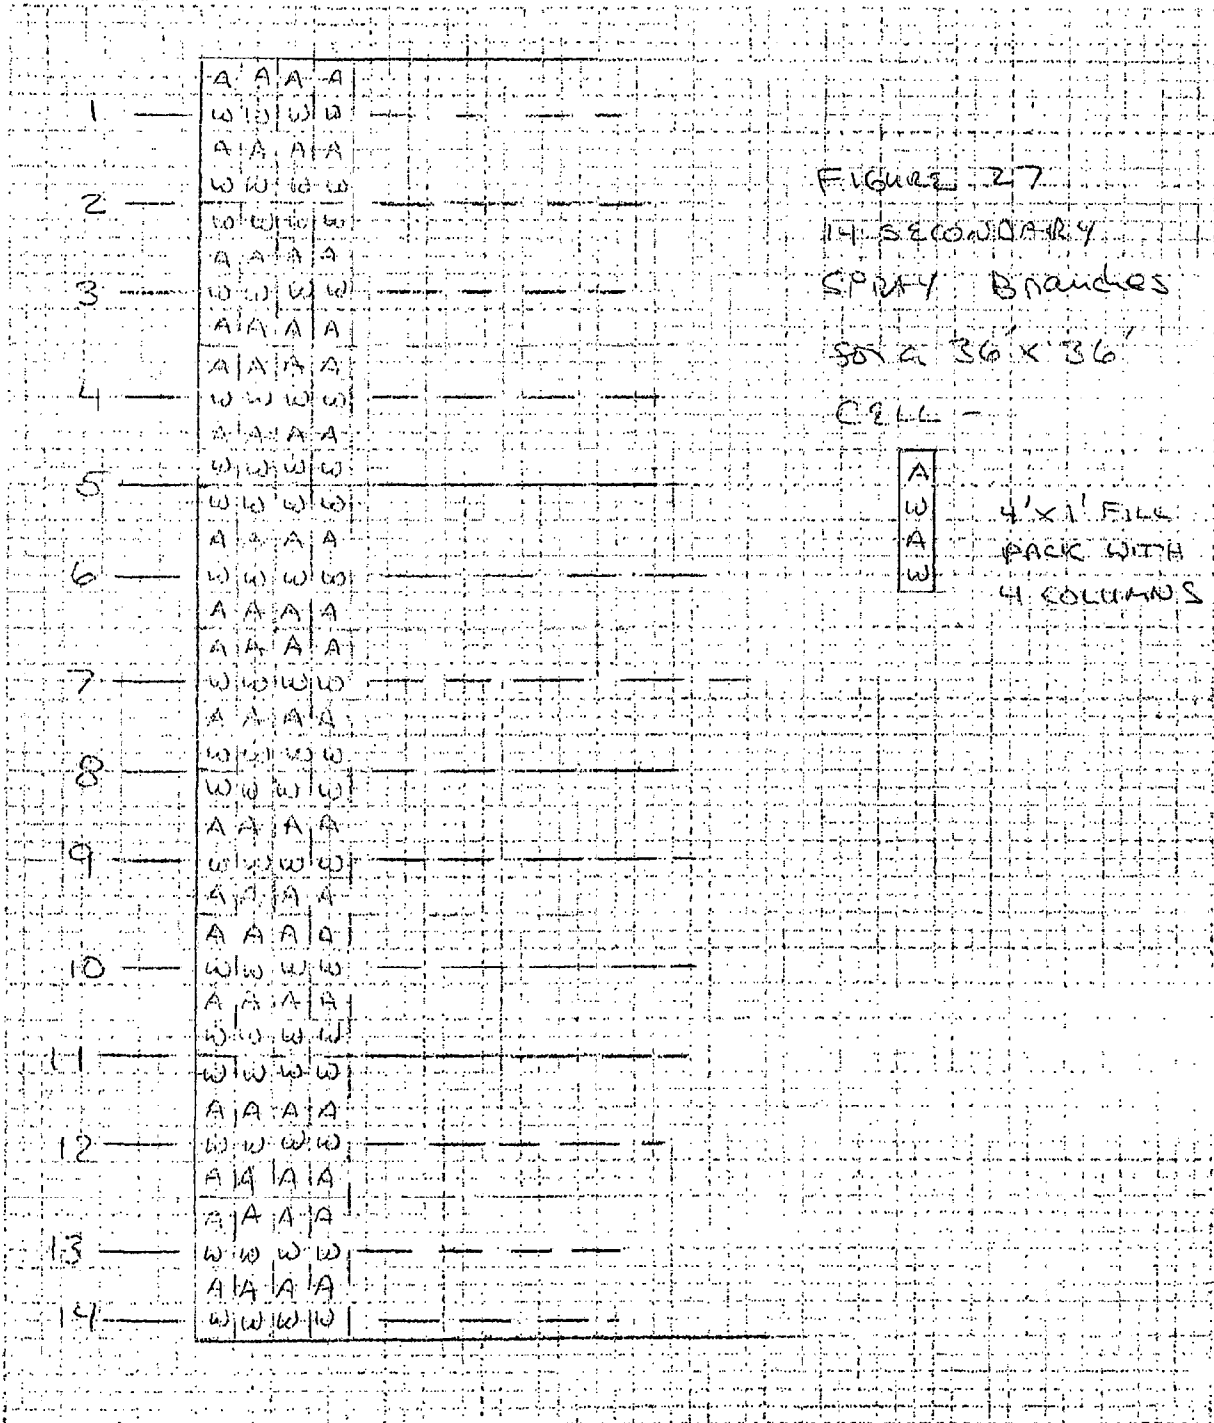 A A A A
1 W W W W
A A A A
W W W W
2
W W W W
A A A A
3 W W W W
A A A A
A A A A
4 W W W W
A A A A
W W W W
5
W W W W
A A A A
6 W W W W
A A A A
A A A A
7 W W W W
A A A A
W W W W
8
W W W W
A A A A
9 W W W W
A A A A
A A A A
10 W W W W
A A A A
W W W W
11
W W W W
A A A A
12 W W W W
A A A A
A A A A
13 W W W W
A A A A
14 W W W W
FIGURE 27
14 SECONDARY
SPRAY Branches
for a 36' x 36'
CELL -
A
W
A
W
4' x 1' FILL
PACK WITH
4 COLUMNS